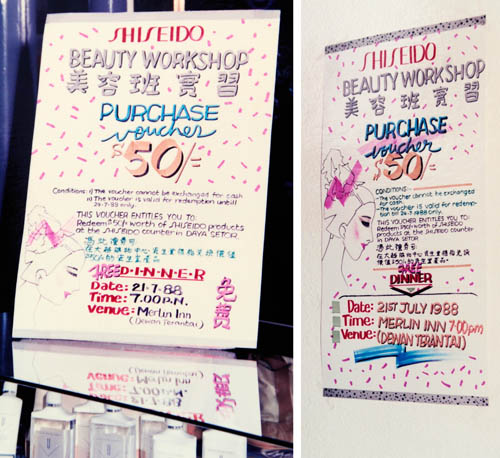 SHISEIDO
BEAUTY WORKSHOP
美容班實習
PURCHASE
voucher
$50/=
Conditions: i) The voucher cannot be exchanged for cash
ii) The voucher is valid for redemption until
24-7-88 only.
THIS VOUCHER ENTITLES YOU TO:
Redeem $50/= worth of SHISEIDO products
at the SHISEIDO counter in DAYA SETOR
憑此禮券可
FREE D·I·N·N·E·R
免費
Date: 21·7·88
Time: 7.00 P.N.
Venue: Merlin Inn
(DEWAN TERANTAI)
SHISEIDO
BEAUTY WORKSHOP
美容班實習
PURCHASE
voucher
$50/=
CONDITIONS:-
- The voucher cannot be exchanged
for cash.
- The VOUCHER is valid for redemp-
tion till 24·7·1988 only.
THIS VOUCHER ENTITLES YOU TO:
Redeem $50/= worth of SHISEIDO
products at the SHISEIDO counter in
DAYA SETOR
憑此禮券可
FREE
DINNER
Date: 21ST JULY 1988
Time: MERLIN INN 7:00pm
Venue: (DEWAN TERANTAI)